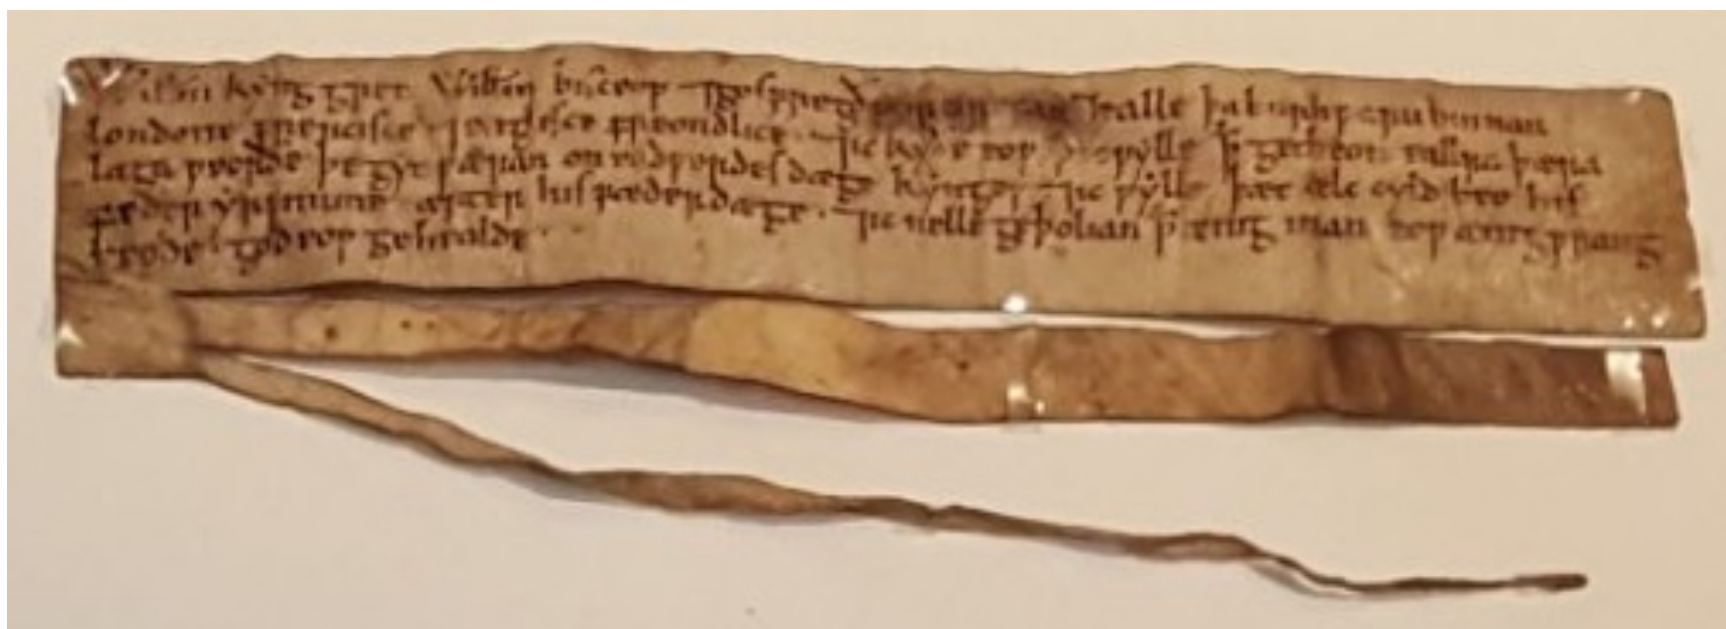 Willm kyng gret Willm bisceop ⁊ gosfregð ⁊ ealle þa burhƿaru binnan
londone frencisce ⁊ englisce freondlice · ⁊ ic kyðe eoƿ þ̄ ic ƿylle þ̄ get beon eallra þæra
laga ƿeorðe þe gyt ƿæran on eadƿerdes dæge kynges · ⁊ ic ƿylle þæt ælc cyld beo his
fæder yrfnume æfter his fæder dæge · ⁊ ic nelle geþolian þ̄ ænig man eoƿ ænig ƿrang
beode · god eoƿ gehealde ·